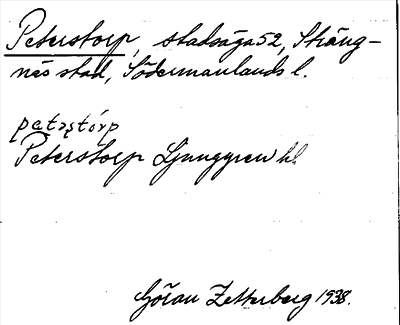 Peterstorp, stadsäga 52, Sträng-
näs stad, Södermanlands l.
petəstórp
Peterstorp Ljunggren hl
Göran Zetterberg 1938.